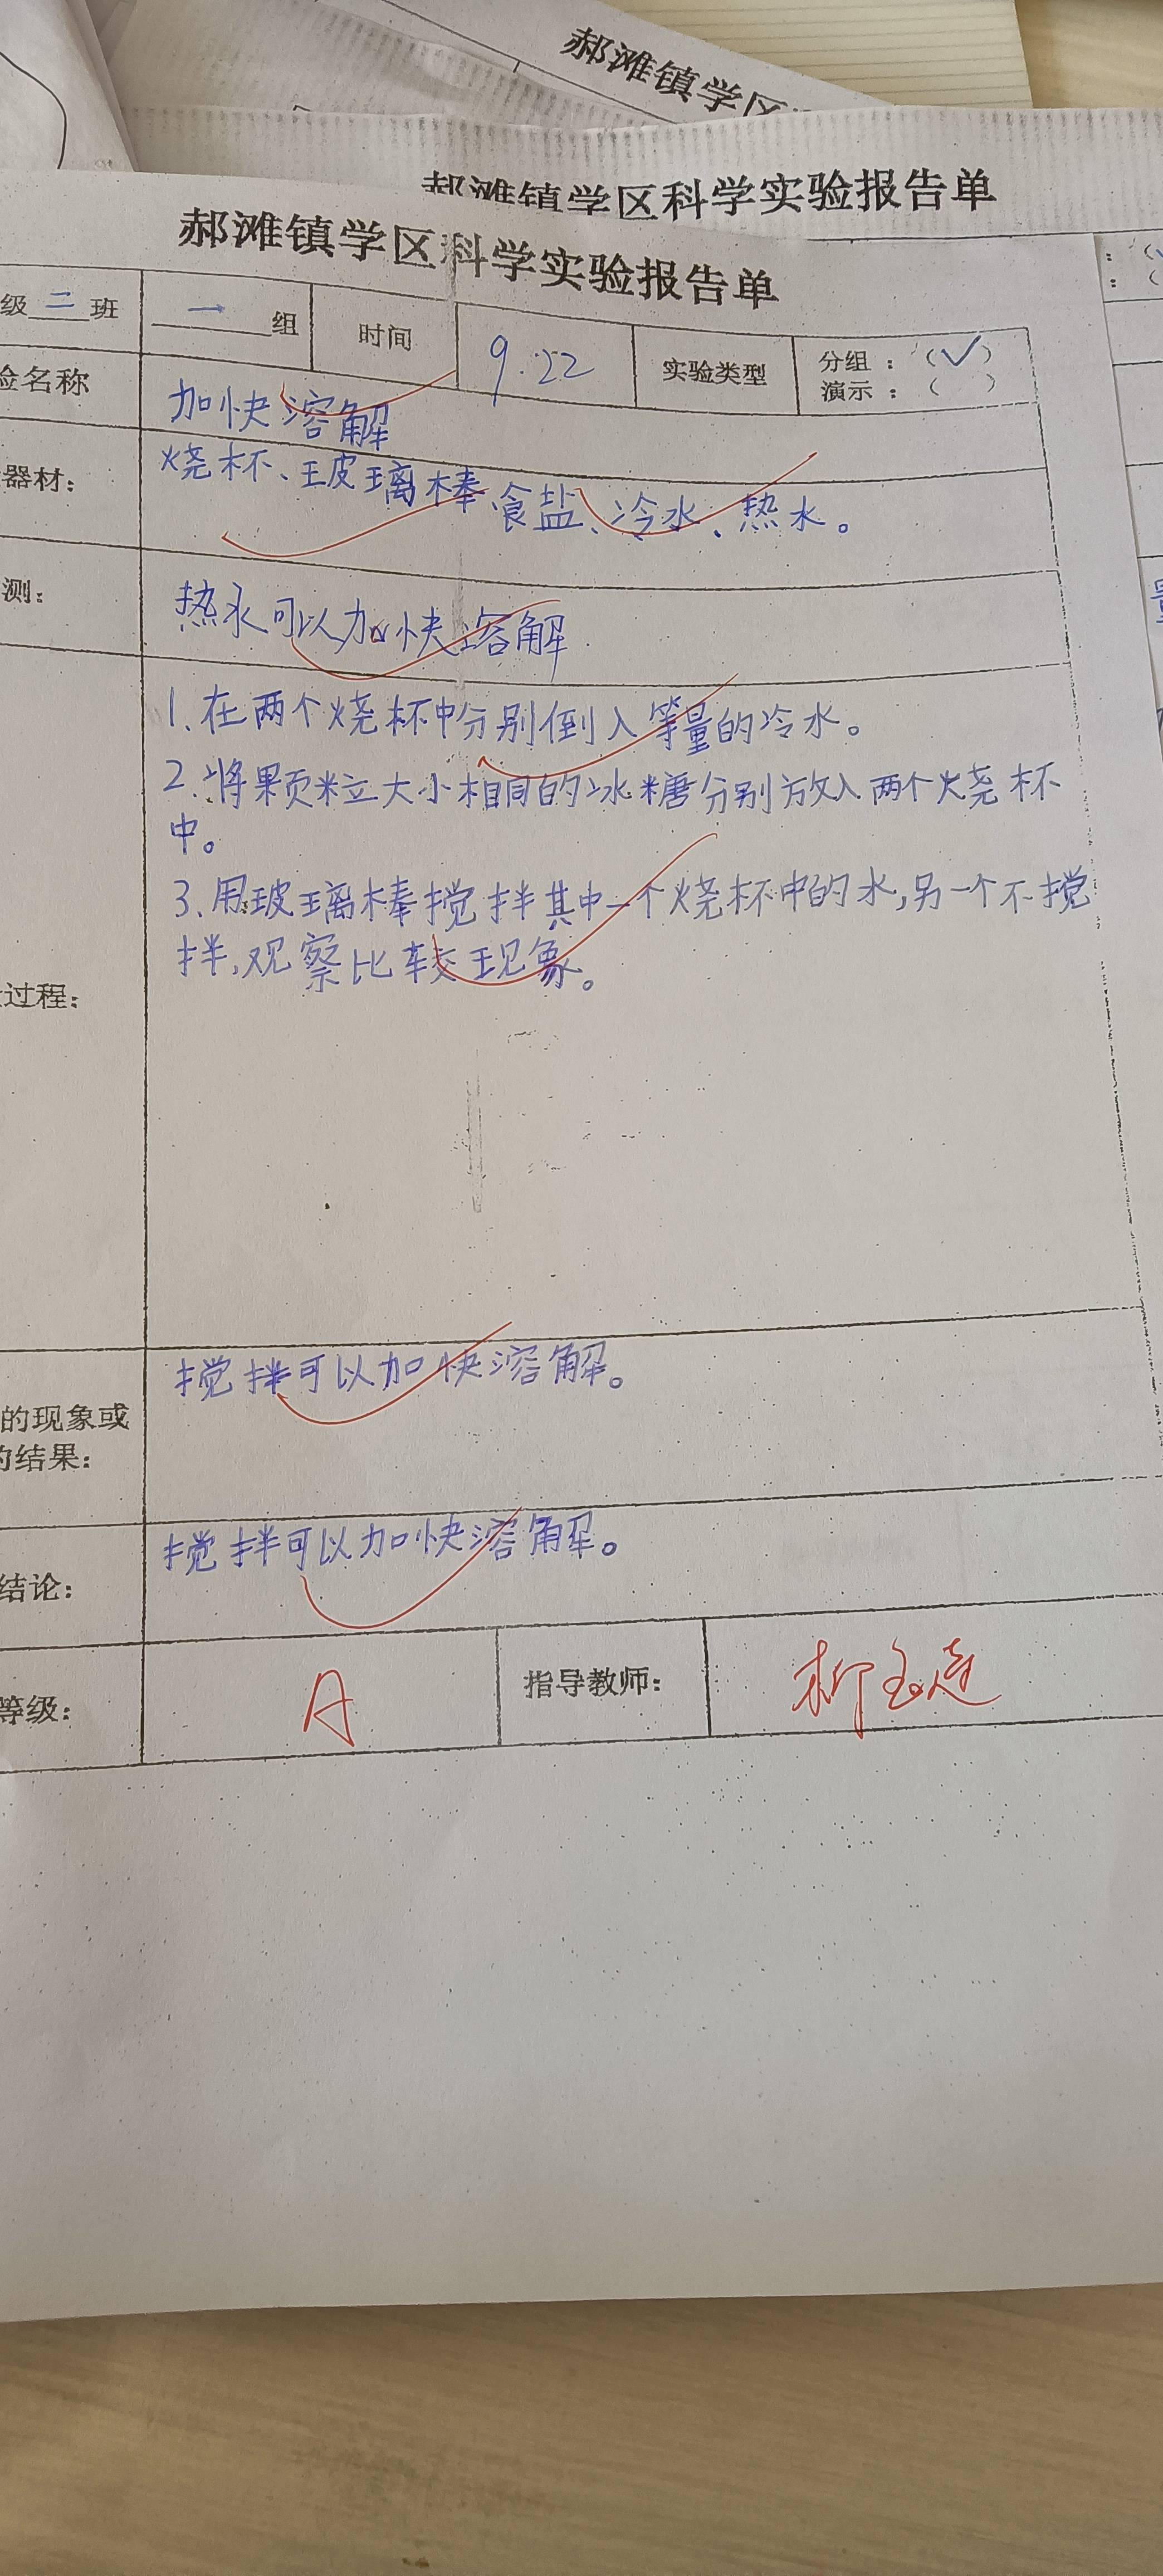 郝滩镇学区
郝滩镇学区科学实验报告单
郝滩镇学区科学实验报告单
级二班 一组 时间 9.22 实验类型 分组：（✓）
演示：（ ）
验名称 加快溶解
器材： 烧杯、玻璃棒、食盐、冷水、热水。
测： 热水可以加快溶解
1.在两个烧杯中分别倒入等量的冷水。
2.将颗粒大小相同的冰糖分别放入两个烧杯
中。
3.用玻璃棒搅拌其中一个烧杯中的水,另一个不搅
拌,观察比较现象。
过程：
搅拌可以加快溶解。
的现象或
的结果：
搅拌可以加快溶解。
结论：
等级： A 指导教师：